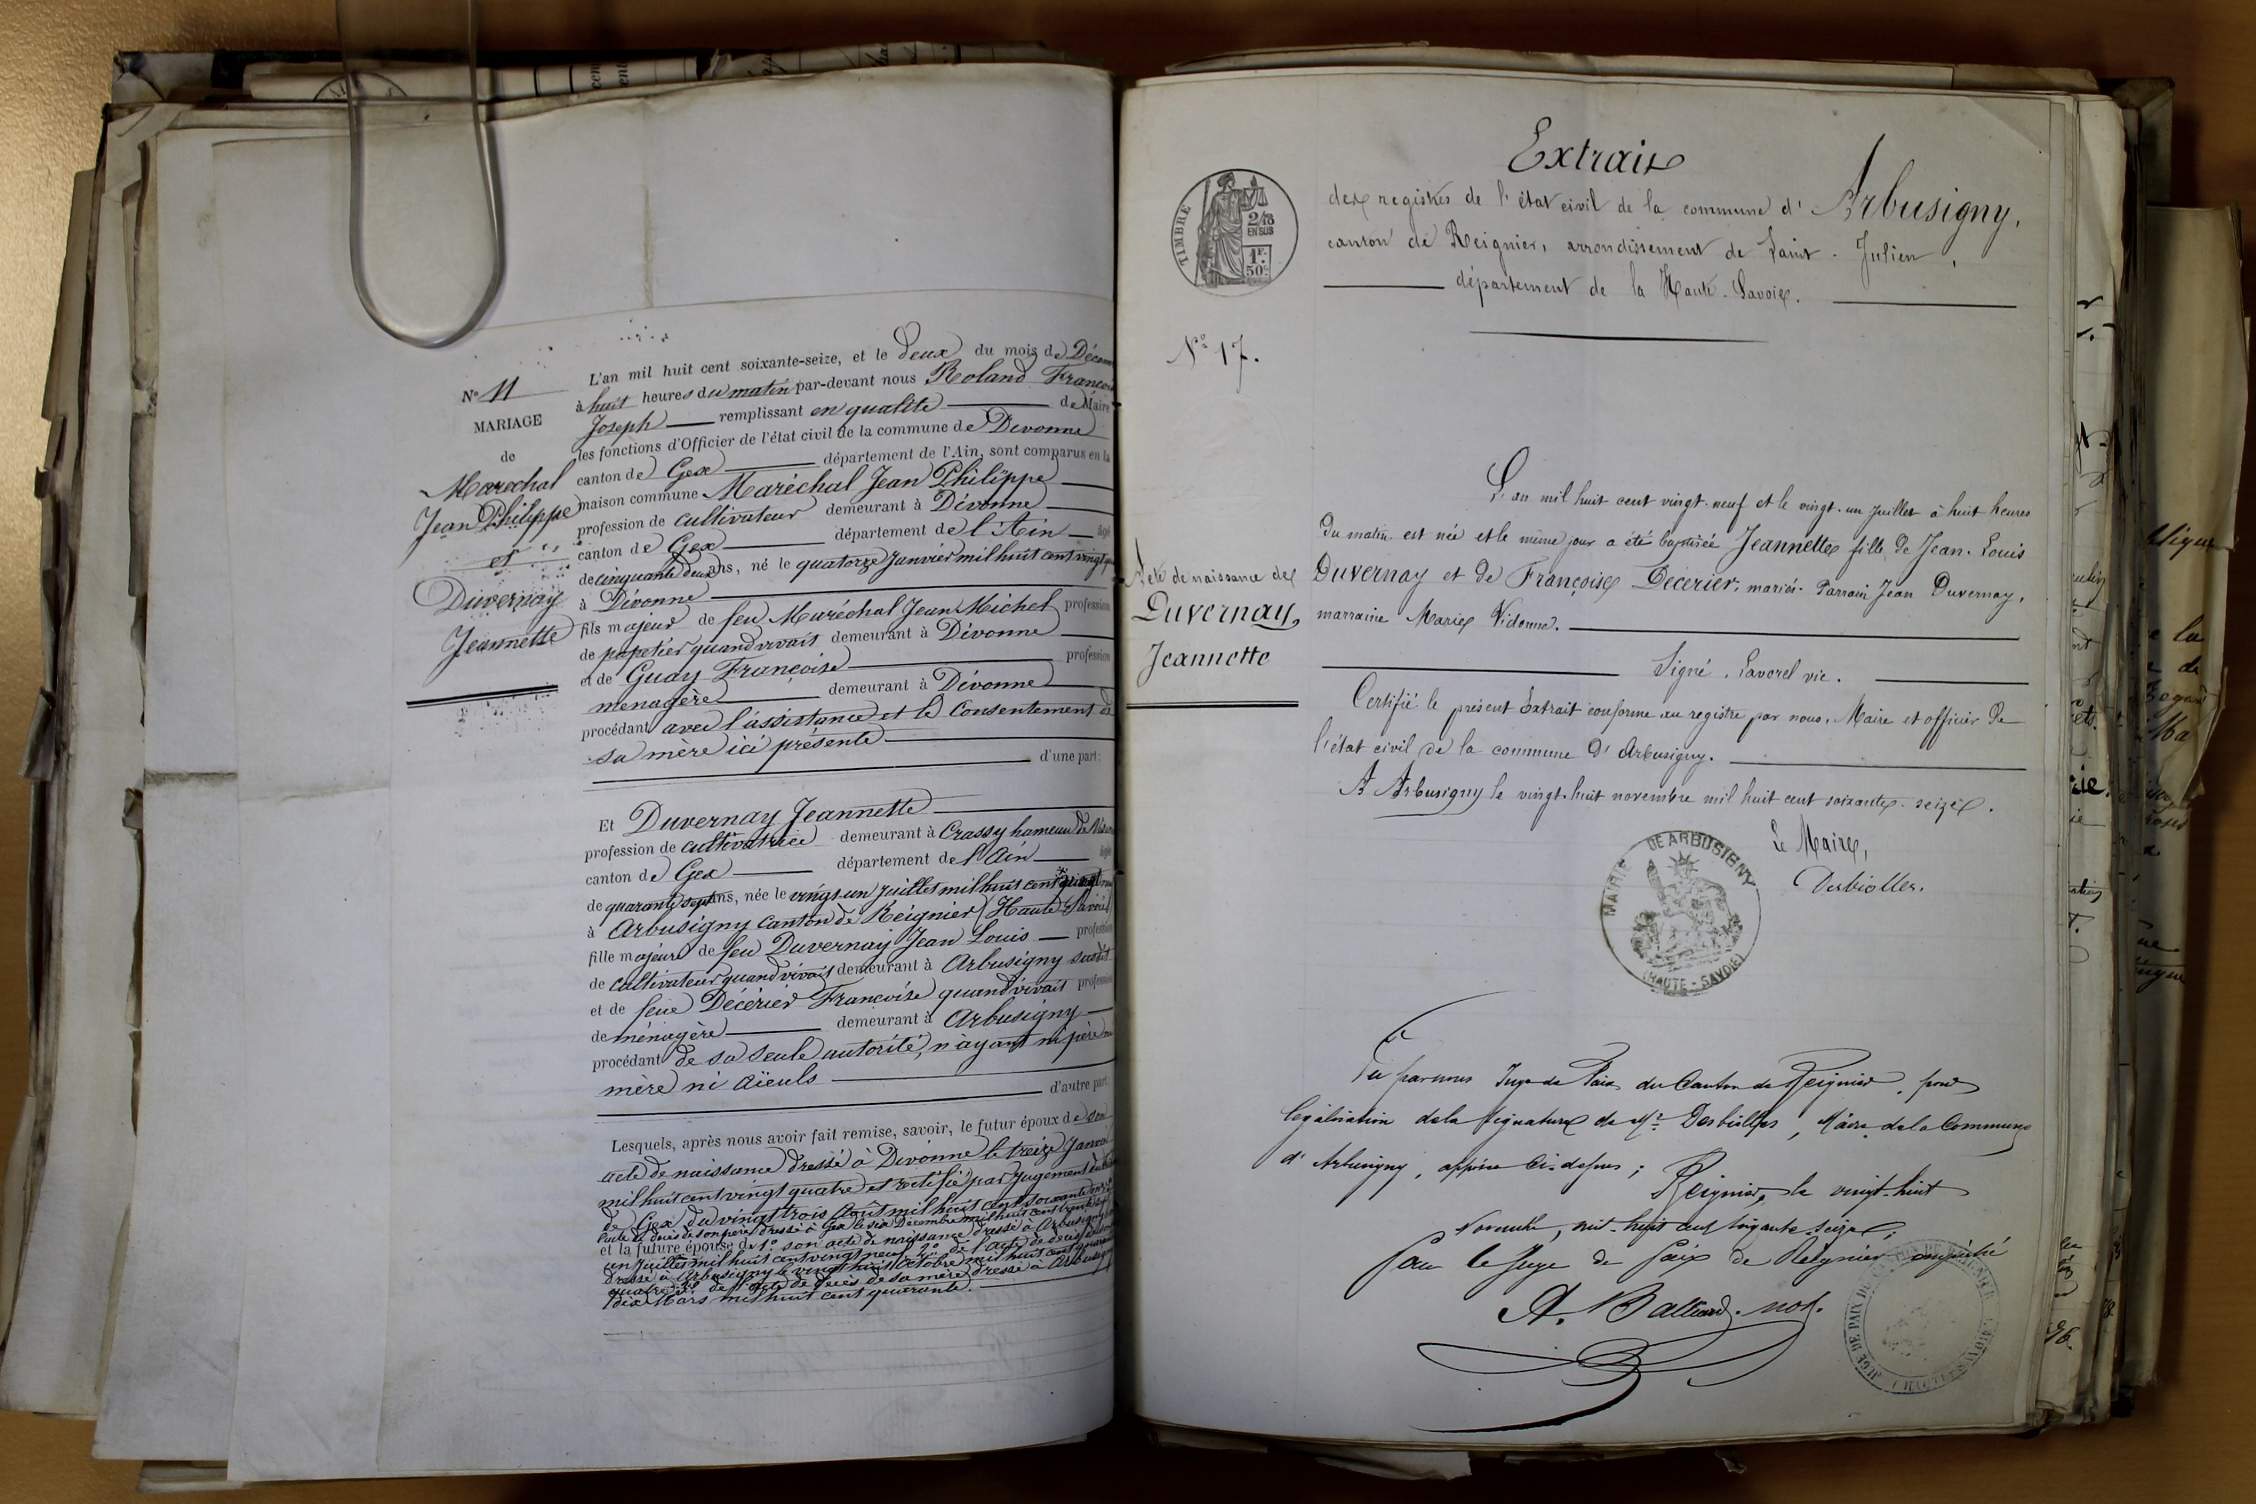 N° 11
MARIAGE
de
Marechal
Jean Philippe
et
Duvernay
Jeannette
L'an mil huit cent soixante-seize, et le deux du mois de
à huit heures du matin par-devant nous Roland
Joseph remplissant en qualité de Maire
les fonctions d'Officier de l'état civil de la commune de Divonne
canton de Gex département de l'Ain, sont comparus en la
maison commune Maréchal Jean Philippe
profession de cultivateur demeurant à Divonne
canton de Gex département de l'Ain âgé
de cinquante deux ans, né le quatorze Janvier mil huit cent vingt
à Divonne
fils majeur de feu Maréchal Jean Michel profession
de papetier quand vivait demeurant à Divonne
et de Guay Françoise profession
menagère demeurant à Divonne
procédant avec l'assistance et le consentement de
sa mère ici présente
d'une part:
Et Duvernay Jeannette
profession de cultivatrice demeurant à Crassy hameau de
canton de Gex département de l'Ain âgée
de quarante sept ans, née le vingt-un Juillet mil huit cent
à Arbusigny canton de Reignier (Haute Savoie)
fille majeure de feu Duvernay Jean Louis profession
de cultivateur quand vivait demeurant à Arbusigny susdit
et de feue Décérier Françoise quand vivait profession
de ménagère demeurant à Arbusigny
procédant de sa seule autorité, n'ayant ni père ni
mère ni aïeuls
d'autre part:
Lesquels, après nous avoir fait remise, savoir, le futur époux de son
acte de naissance dressé à Divonne le treize Janvier
mil huit cent vingt quatre et rectifié par Jugement
de Gex du vingt trois Août mil huit cent soixante
l'acte de décès de son père dressé à Gex le six Décembre mil huit cent
et la future épouse de 1° son acte de naissance dressé à Arbusigny
un Juillet mil huit cent vingt neuf 2° de l'acte de décès
dressé à Arbusigny le vingt huit Octobre mil huit cent
quatre 3° de l'acte de décès de sa mère dressé à Arbusigny
dix Mars mil huit cent quarante.
Extrait
des registres de l'état civil de la commune d'Arbusigny,
canton de Reignier, arrondissement de Saint-Julien,
département de la Haute-Savoie.
TIMBRE
2/10
EN SUS
1F.
50c.
N° 17.
Acte de naissance de
Duvernay,
Jeannette
L'an mil huit cent vingt-neuf et le vingt-un juillet à huit heures
du matin est née et le même jour a été baptisée Jeannette fille de Jean-Louis
Duvernay et de Françoise Décerier, mariés. Parrain Jean Duvernay,
marraine Marie Vidonne.
Signé, Lavorel vic.
Certifié le présent Extrait conforme au registre par nous, Maire et officier de
l'état civil de la commune d'Arbusigny.
A Arbusigny le vingt-huit novembre mil huit cent soixante-seize.
Le Maire,
Desbiolles.
MAIRIE DE ARBUSIGNY
(HAUTE-SAVOIE)
Vu par nous Juge de Paix du Canton de Reignier, pour
légalisation de la signature de Mr Desbiolles, Maire de la Commune
d'Arbusigny, apposée ci-dessus;
Reignier, le vingt-huit
Novembre, mil-huit cent soixante seize;
Pour le Juge de paix de Reignier empêché
A. not.
JUGE DE PAIX DU CANTON DE REIGNIER